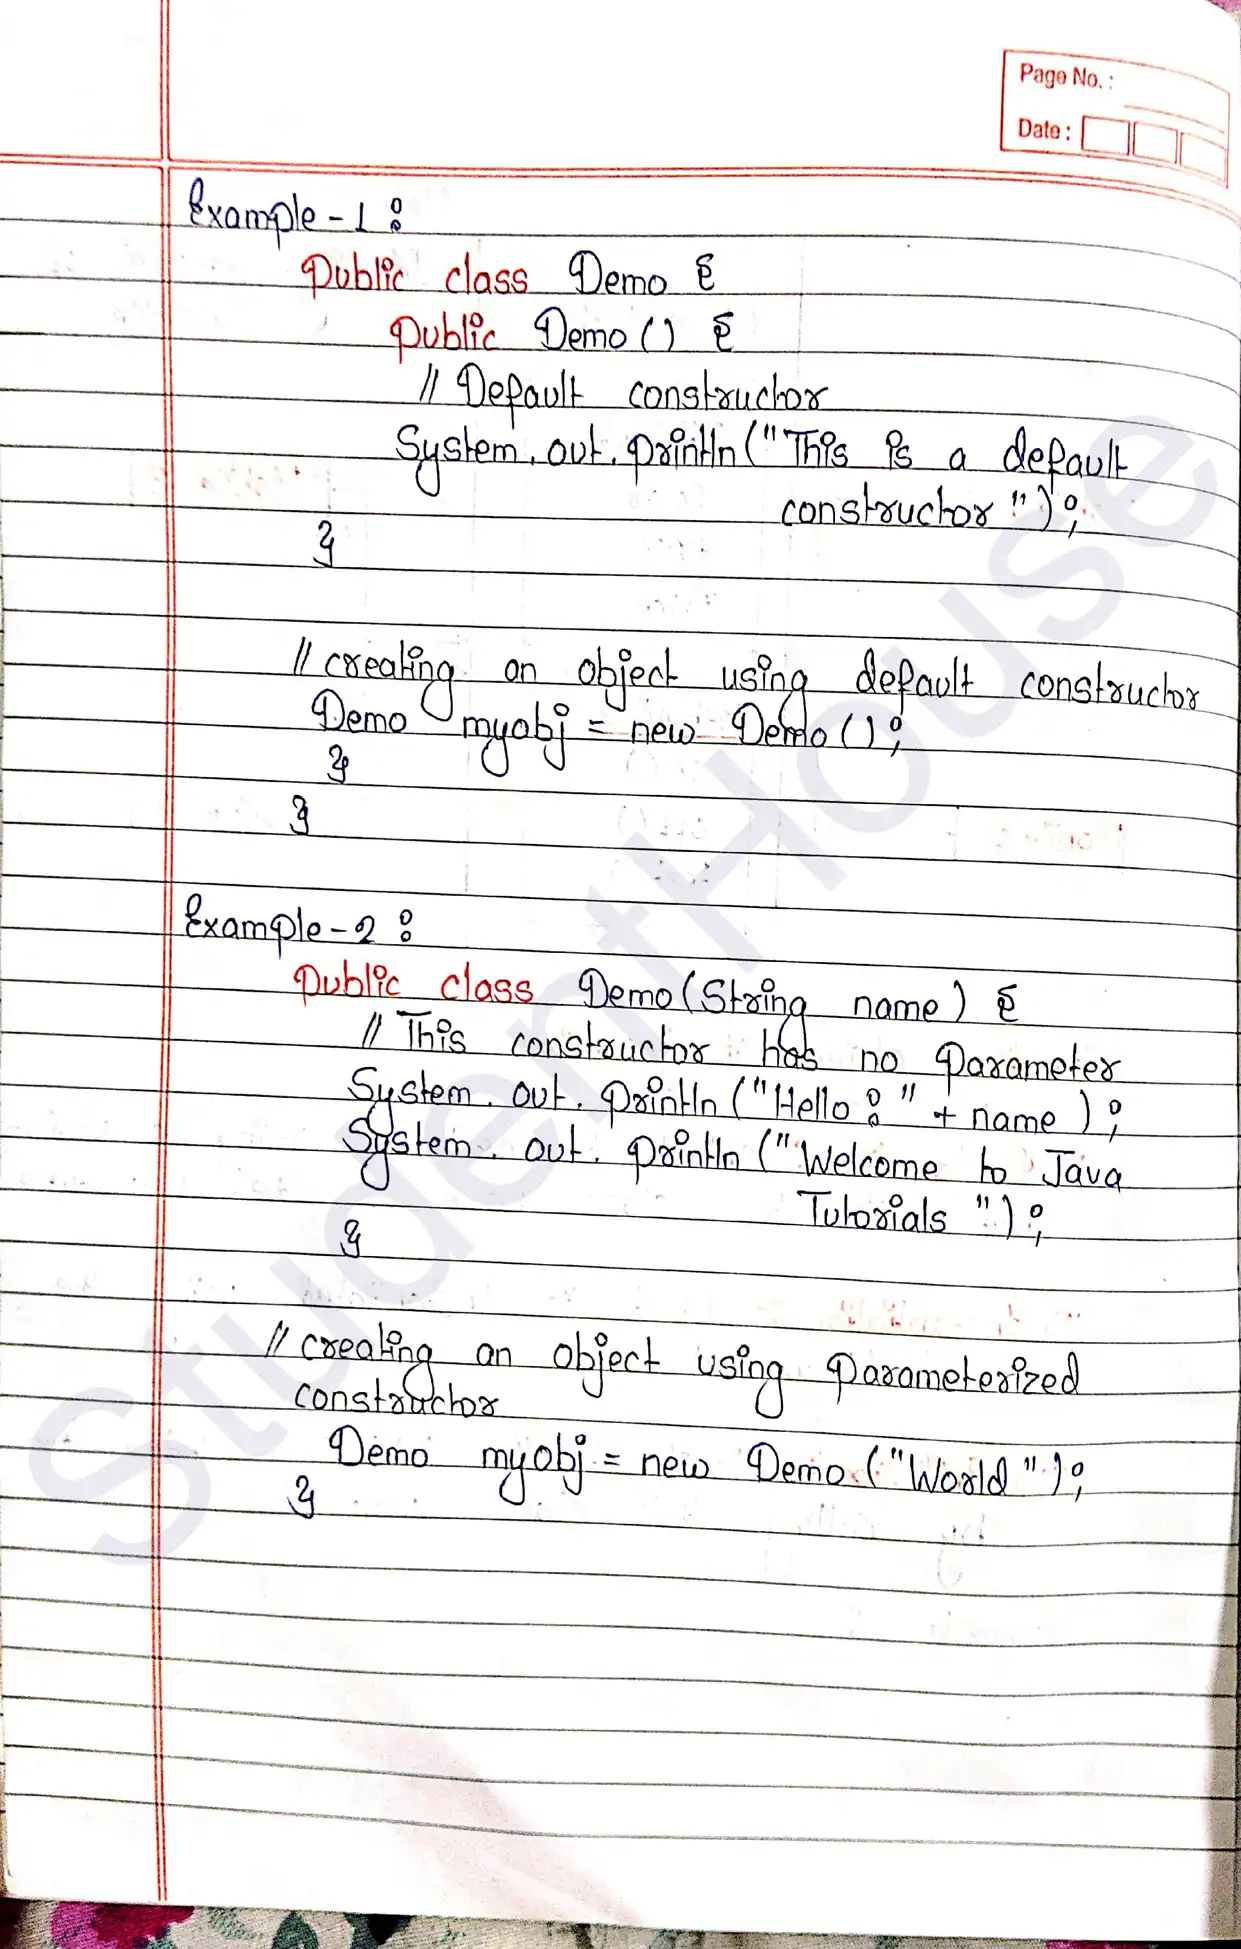 Page No. :
Date :
Example - 1 :
Public class Demo {
Public Demo () {
// Default constructor
System . out . println ("This is a default
constructor ") ;
}
// creating an object using default constructor
Demo myobj = new Demo () ;
}
}
Example - 2 :
Public class Demo (String name) {
// This constructor has no Parameter
System . out . println ("Hello : " + name ) ;
System . out . println ("Welcome to Java
Tutorials ") ;
}
// creating an object using Parameterized
constructor
Demo myobj = new Demo ("World ") ;
}
StudentHouse